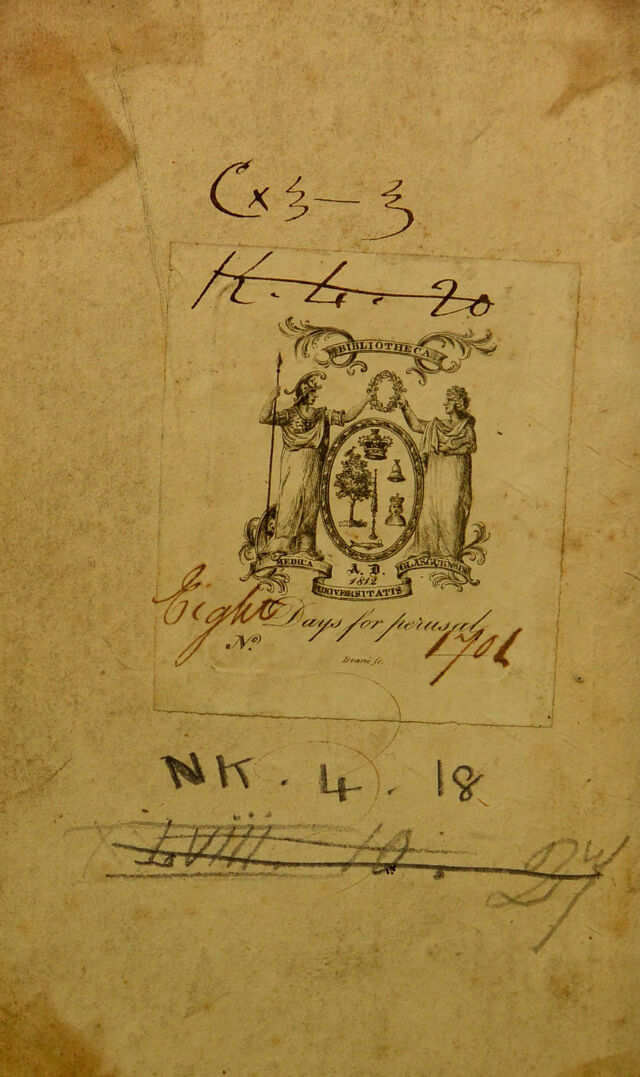 K. 4. 20
BIBLIOTHECA
MEDICA
A. D.
1812
GLASGUENSIS
UNIVERSITATIS
Eight Days for perusal
No. 1701
NK. 4. 18